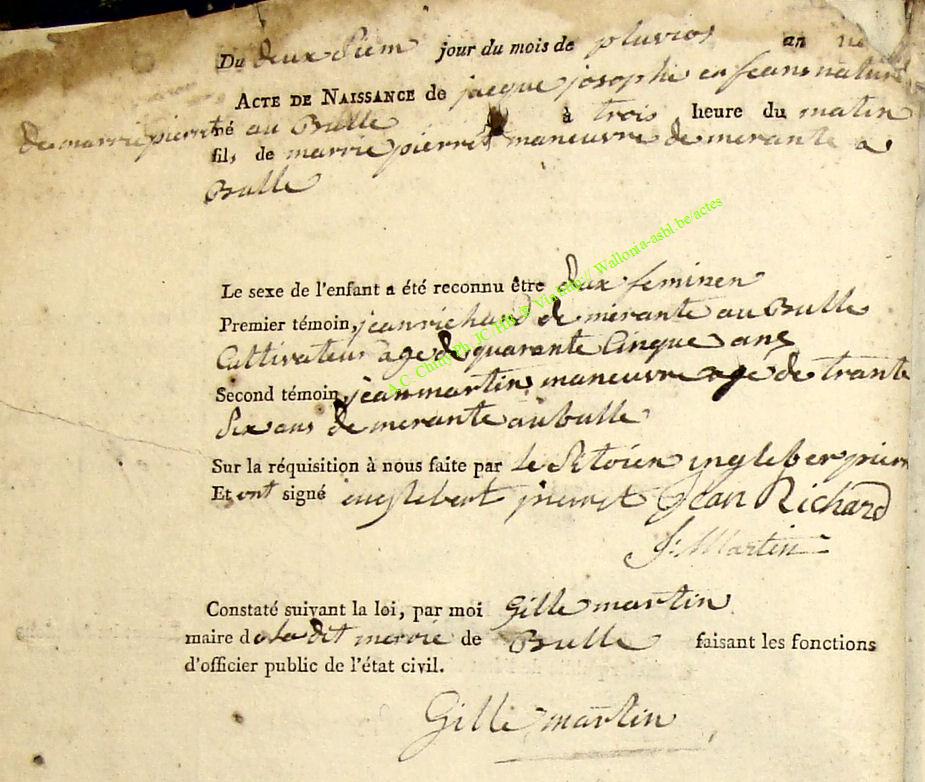 Du deux siem jour du mois de pluvios an
ACTE DE NAISSANCE de jacque josophe enfeans naturel
de marrie pierret né au Bulle à trois heure du matin
fils de marrie pierret maneuvre demerante a
Bulle
Le sexe de l'enfant a été reconnu être deux feminen
Premier témoin, jean richard demerante au Bulle
Cultivateur age de quarante Cinque ans
Second témoin, jean martin maneuvre age de trante
Six ans demerante au bulle
Sur la réquisition à nous faite par le Sitoien ingleber
Et ont signé englebert pierret Jean Richard
J: Martin
Constaté suivant la loi, par moi Gille martin
maire de la dit merrie de Bulle faisant les fonctions
d'officier public de l'état civil.
Gille martin
A.C. Chiny Ph. JC Hit & Vincent / Wallonia-asbl.be/actes